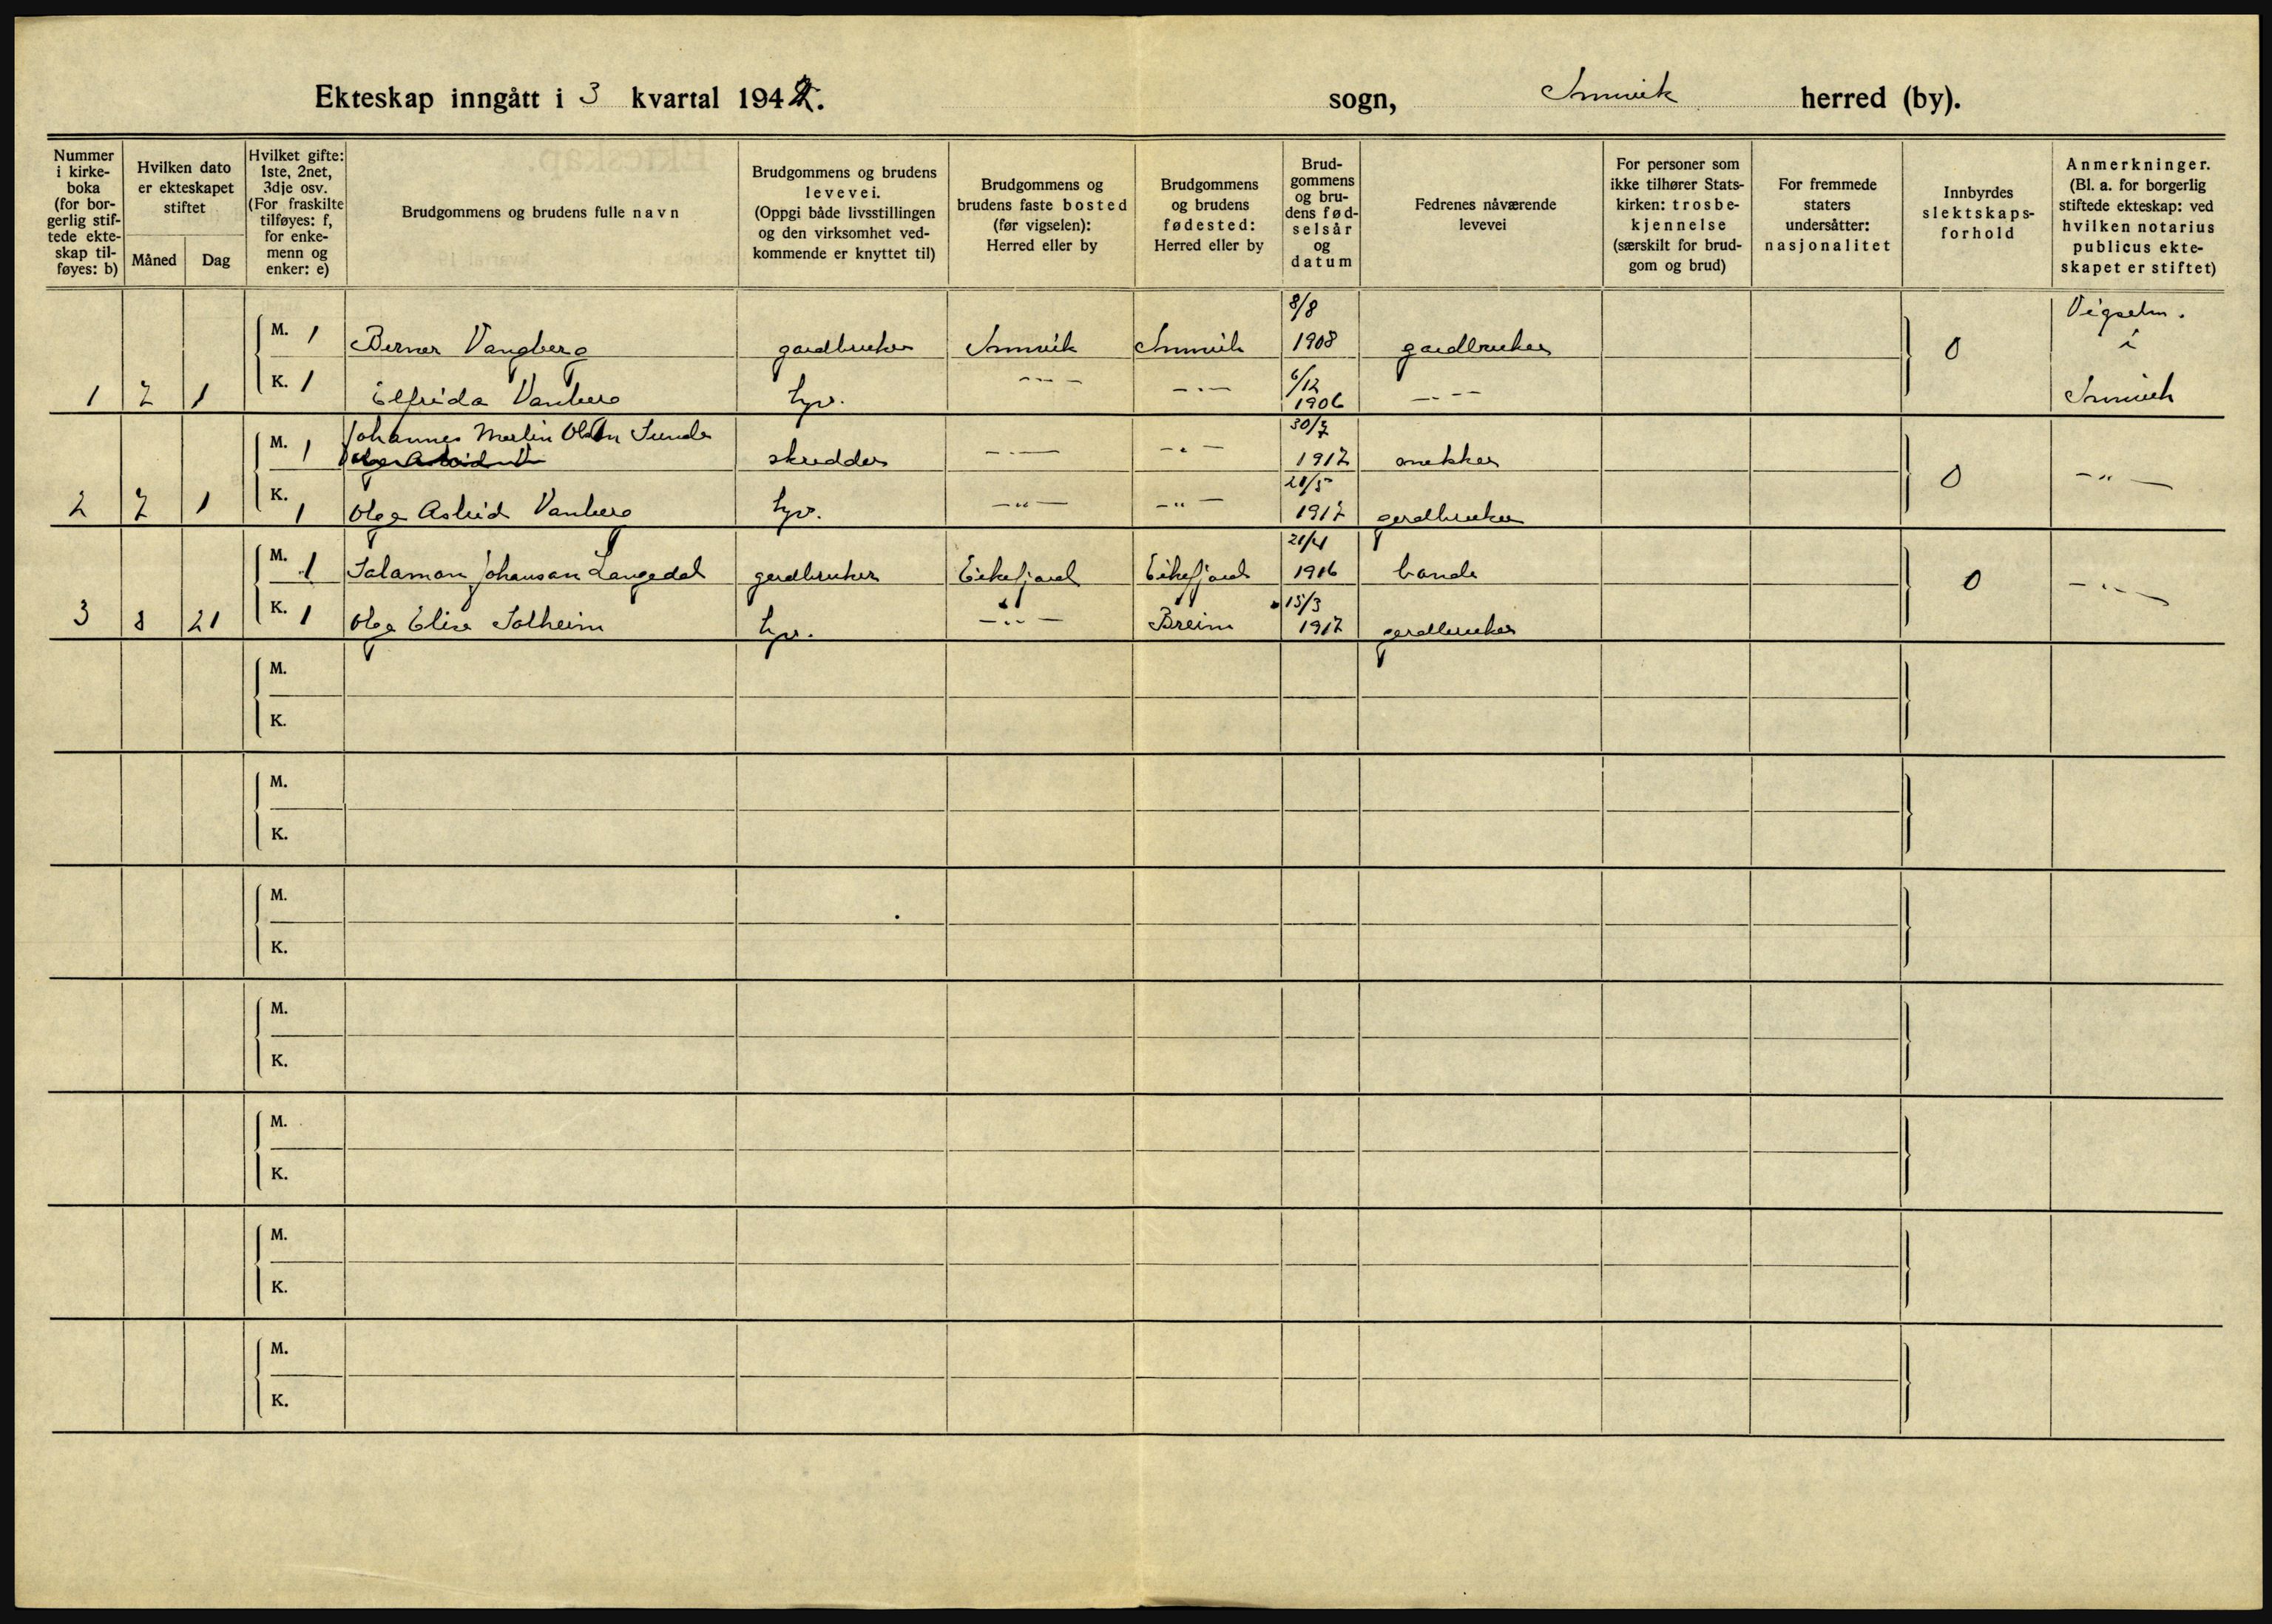 Ekteskap inngått i 3 kvartal 1942. sogn, Innvik herred (by).
Nummer i kirkeboka (for borgerlig stiftede ekteskap tilføyes: b)
Hvilken dato er ekteskapet stiftet
Måned Dag
Hvilket gifte: 1ste, 2net, 3dje osv. (For fraskilte tilføyes: f, for enkemenn og enker: e)
Brudgommens og brudens fulle navn
Brudgommens og brudens levevei. (Oppgi både livsstillingen og den virksomhet vedkommende er knyttet til)
Brudgommens og brudens faste bosted (før vigselen): Herred eller by
Brudgommens og brudens fødested: Herred eller by
Brudgommens og brudens fødselsår og datum
Fedrenes nåværende levevei
For personer som ikke tilhører Statskirken: trosbekjennelse (særskilt for brudgom og brud)
For fremmede staters undersåtter: nasjonalitet
Innbyrdes slektskapsforhold
Anmerkninger. (Bl. a. for borgerlig stiftede ekteskap: ved hvilken notarius publicus ekteskapet er stiftet)
M. 1 Berner Vangberg gardbruker Innvik Innvik 8/8 1908 gardbruker 0 Vigseln. i Innvik
1 7 1 K. 1 Elfrida Vanberg hyr. -"- -"- 6/12 1906 -"-
M. 1 Johannes Martin Olsen Sunde skredder -"- -"- 30/7 1917 snekker 0 -"-
2 7 1 K. 1 Olga Astrid Vanberg hyr. -"- -"- 21/5 1917 gardbruker
M. 1 Salamon Johansen Langedal gardbruker Eikefjord Eikefjord 21/4 1916 bonde 0 -"-
3 8 21 K. 1 Olga Elise Solheim hyr. -"- Breim 15/3 1917 gardbruker
M.
K.
M.
K.
M.
K.
M.
K.
M.
K.
M.
K.
M.
K.